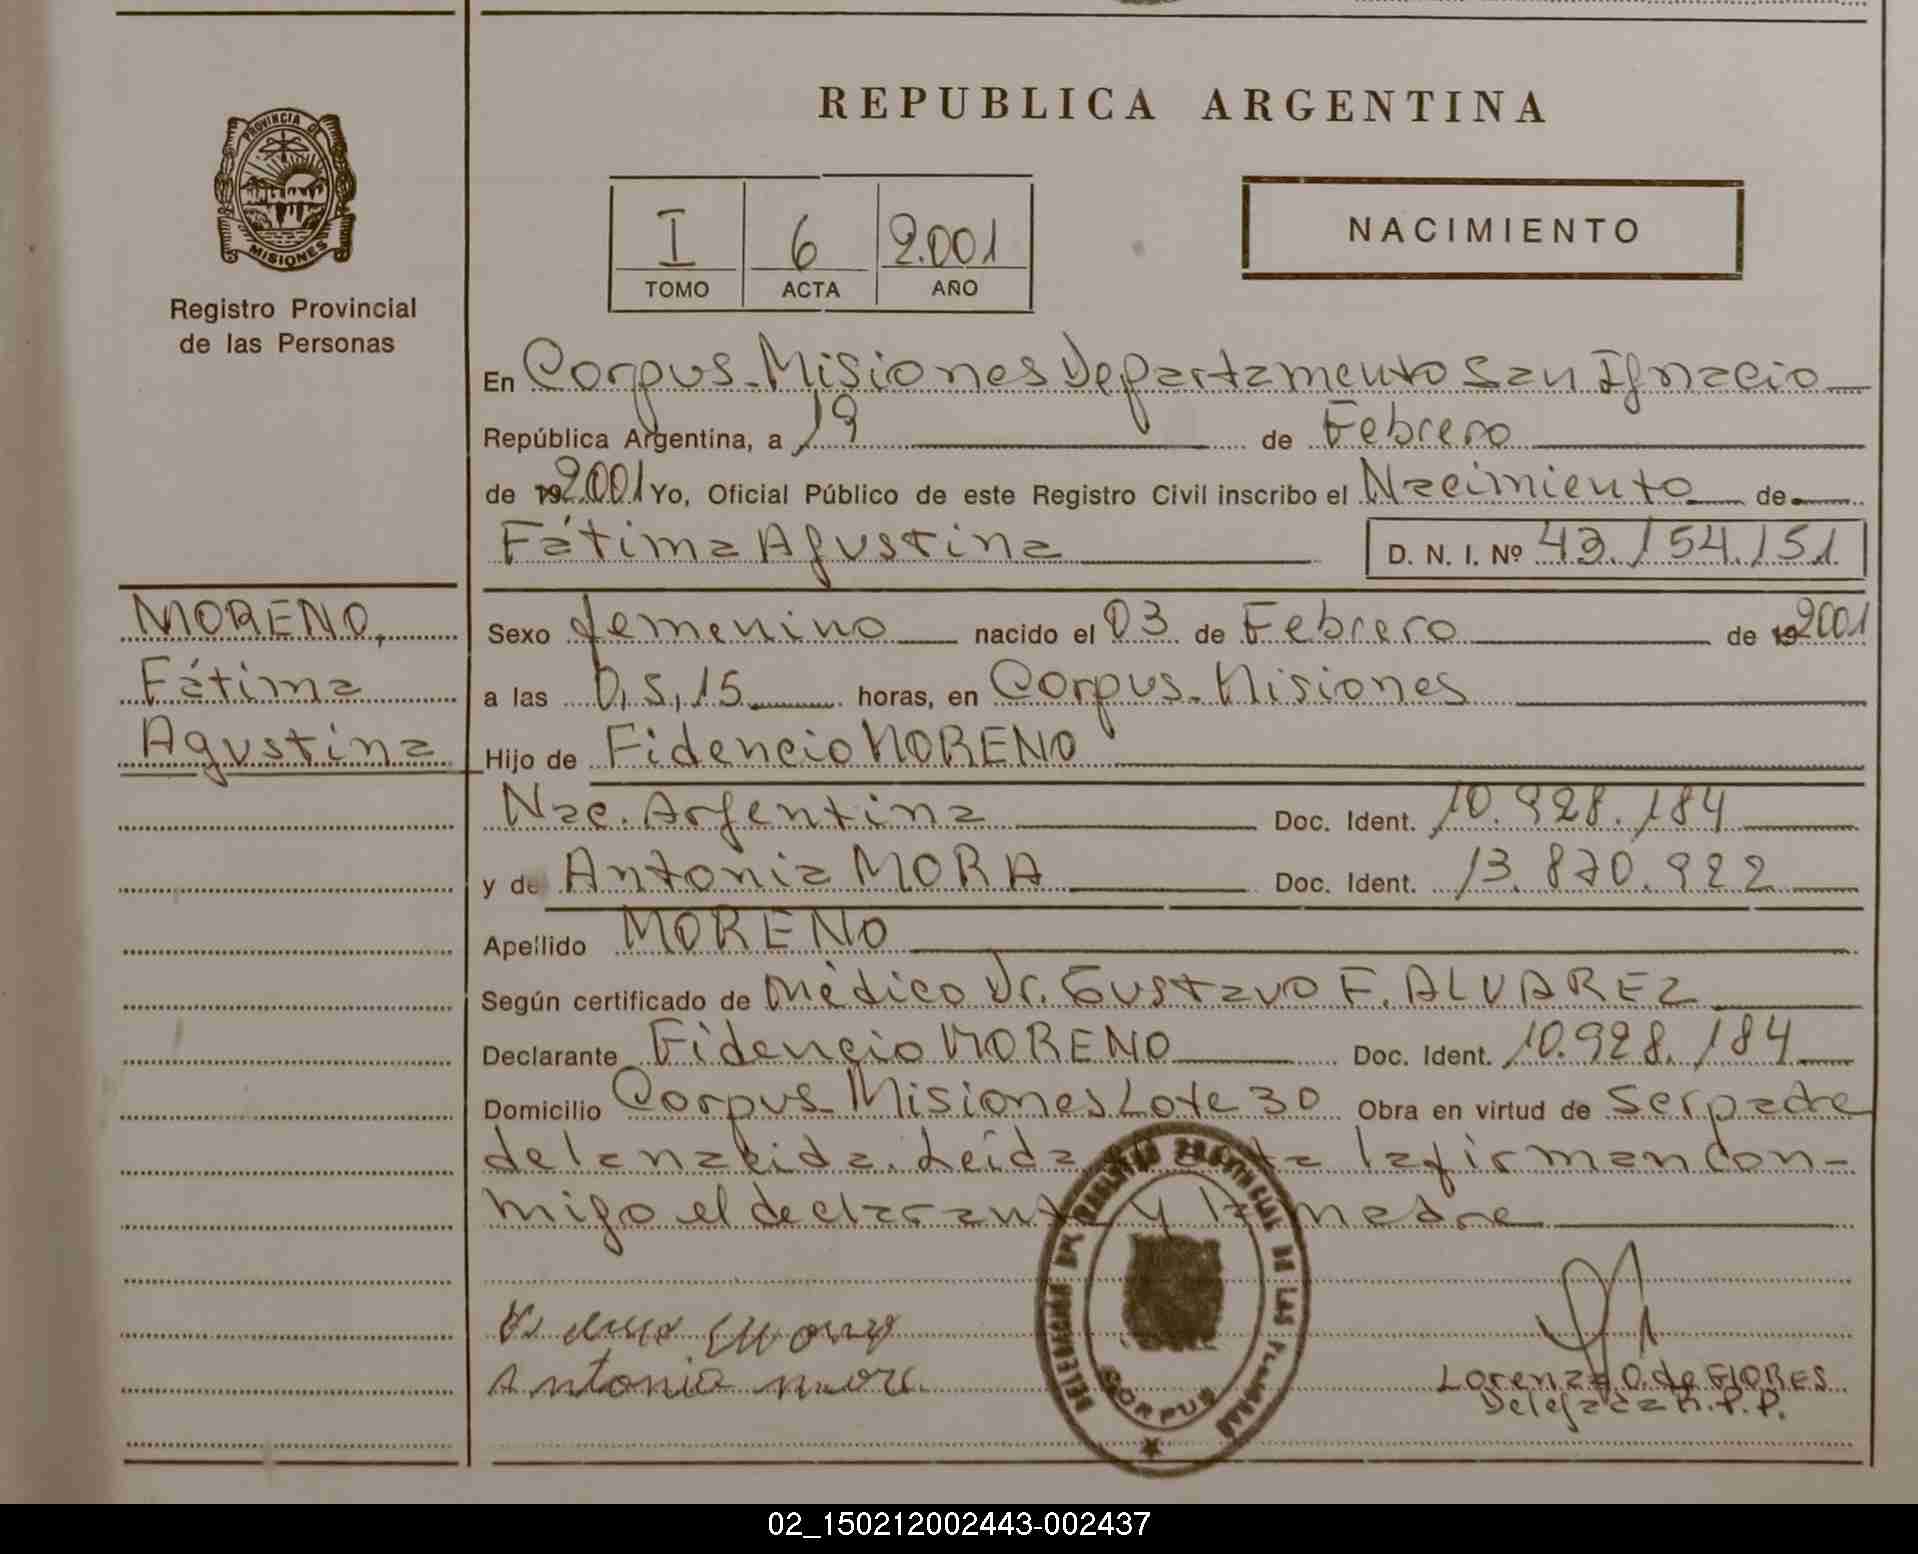 REPUBLICA ARGENTINA
PROVINCIA DE MISIONES
Registro Provincial
de las Personas
I 6 2.001
TOMO ACTA AÑO
NACIMIENTO
En Corpus-Misiones Departamento San Ignacio
República Argentina, a 19 de Febrero
de 19 2.001 Yo, Oficial Público de este Registro Civil inscribo el Nacimiento de
Fátima Agustina D. N. I. Nº 43.154.151
MORENO,
Fátima
Agustina
Sexo femenino nacido el 03 de Febrero de 19 2001
a las 0,5,15 horas, en Corpus-Misiones
Hijo de Fidencio MORENO
Nac. Argentina Doc. Ident. 10.928.184
y de Antonia MORA Doc. Ident. 13.870.922
Apellido MORENO
Según certificado de Médico Dr. Gustavo F. ALVAREZ
Declarante Fidencio MORENO Doc. Ident. 10.928.184
Domicilio Corpus-Misiones Lote 30 Obra en virtud de ser padre
de la nacida. Leída el acta la firman con-
migo el declarante y la madre
DELEGACION DEL REGISTRO PROVINCIAL DE LAS PERSONAS
CORPUS
Antonia mora
Lorenza O. de FLORES
Delegada R.P.P.
02_150212002443-002437